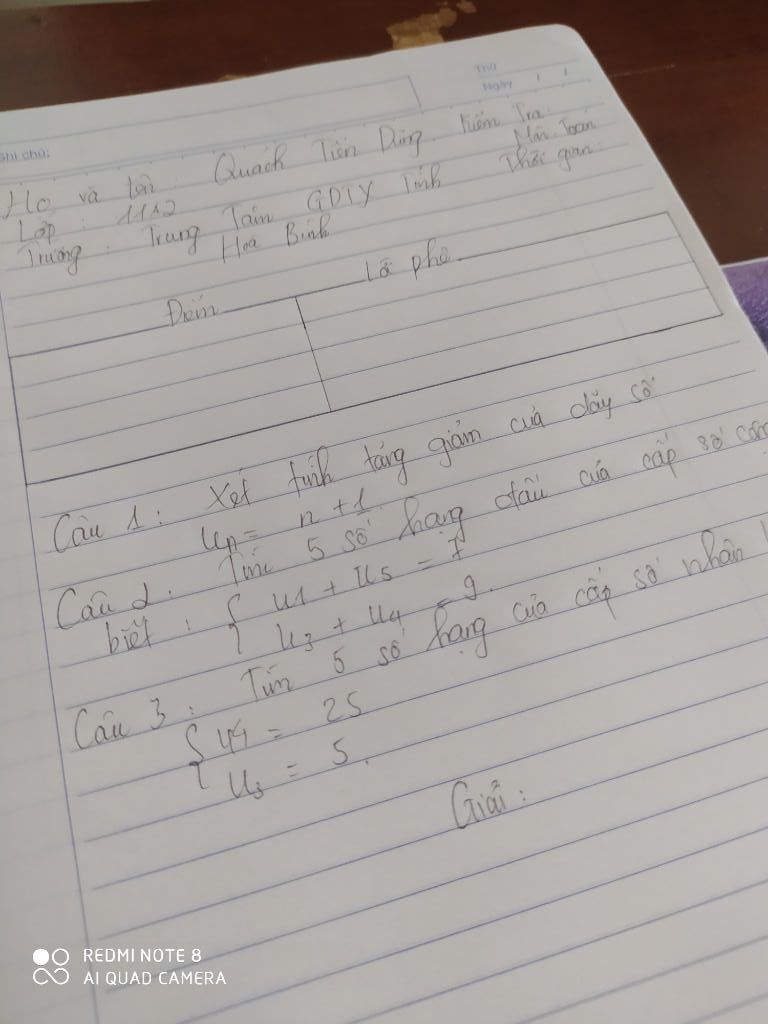 Thứ
Ngày / /
Ghi chú:
Họ và tên: Quách Tiến Dũng. Kiểm Tra
Lớp: 11A2 Môn Toán
Trường: Trung Tâm GDTX Tỉnh Thời gian:
Hoà Bình
Điểm Lời phê
Câu 1: Xét tính tăng giảm của dãy số
un = n + 1
Câu 2. Tìm 5 số hạng đầu của cấp số cộng
biết: { u1 + u5 = 7
u3 + u4 = 9.
Câu 3: Tìm 5 số hạng của cấp số nhân
{ u4 = 25
u3 = 5.
Giải:
REDMI NOTE 8
AI QUAD CAMERA